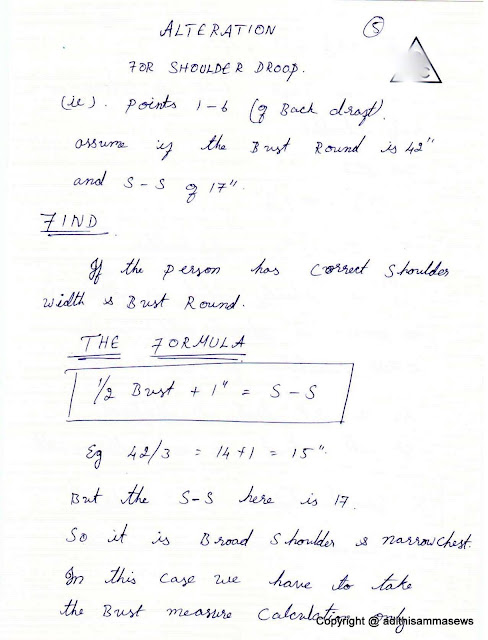 ALTERATION
5
FOR SHOULDER DROOP.
(ie). Points 1-6 (of Back draft).
assume if the Bust Round is 42"
and S-S of 17".
FIND
If the person has correct shoulder
width & Bust Round.
THE FORMULA
1/2 Bust + 1" = S-S
Eg 42/3 = 14+1 = 15".
But the S-S here is 17.
So it is Broad Shoulder & narrow chest.
In this case we have to take
the Bust measure calculation only
Copyright @ adithisammasews